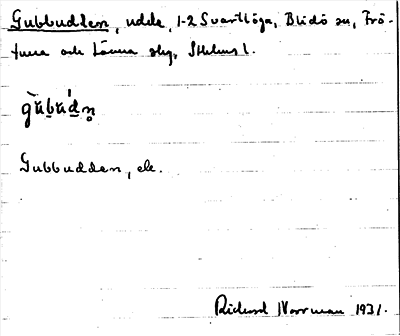 Gubbudden, udde, 1-2 Svartlöga, Blidö sn, Frö-
tuna och Länna skg, Sthlms l.
gùbudn̥
Gubbudden, ek.
Richard Norrman 1931.